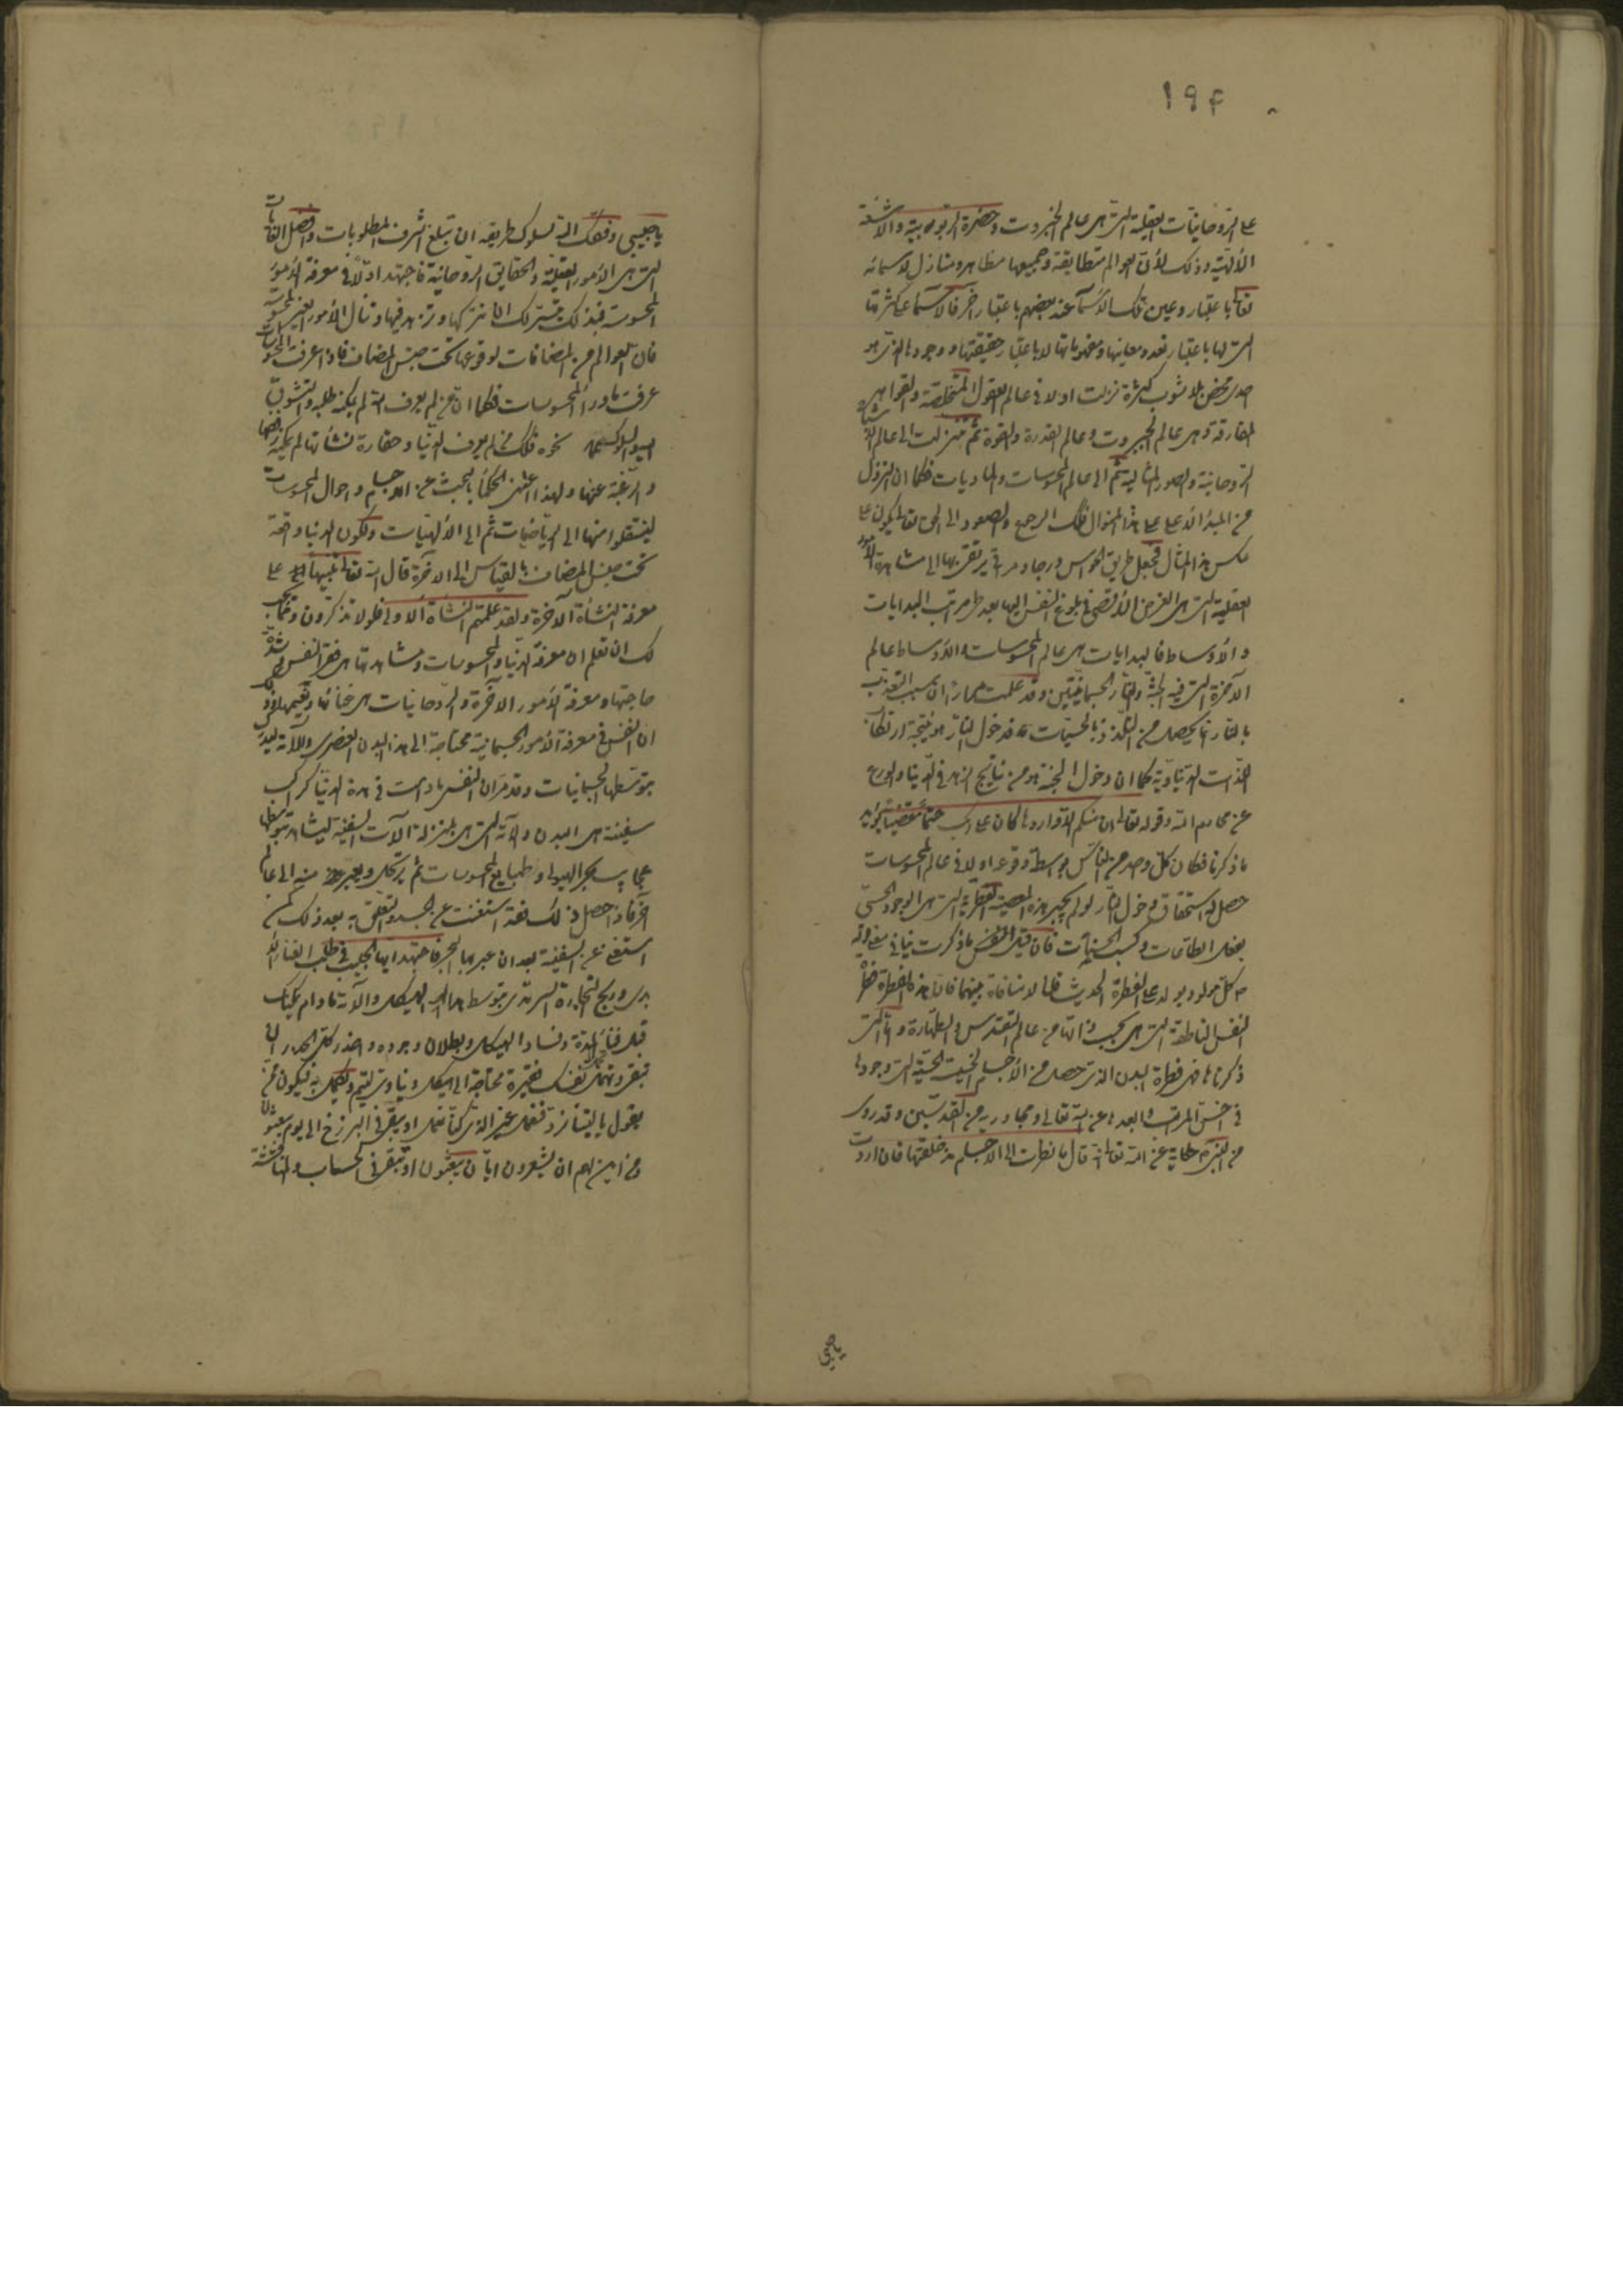 ١٩۴
على الروحانيات العقلية التي هي عالم الجبروت وحضرة الربوبية والاشعة
الالهية وذلك لأن العوالم متطابقة وجميعها مظاهر ومنازل لاسمائه
تعالى باعتبار وعين تلك الأسماء عند بعضهم باعتبار آخر فالاسماء على كثرتها
التي لها باعتبار تعدد معانيها ومفهوماتها لا باعتبار حقيقتها ووجودها الذي هو
احدي محض بلا شوب كثرة نزلت اولا في عالم العقول المتخلصة والقواهر
المفارقة وهي عالم الجبروت وعالم القدرة والقوة ثم تنزلت الى عالم
الروحانية والصور المثالية ثم الى عالم المحسوسات والماديات فكما ان النزول
من المبدأ الأعلى على هذا المنوال فكذلك الرجوع والصعود الى الحق تعالى يكون على
عكس هذا المثال فجعل طريق الحواس درجا ومراقي يرتقى بها الى مشاهدة الأمور
العقلية التي هي الغرض الأقصى في بلوغ النفس اليها بعد طي مراتب البدايات
والأوساط فالبدايات هي عالم المحسوسات والأوساط عالم
الآخرة التي فيه الجنة والنار الجسمانيتين وقد علمت مرارا ان سبب التعذب
بالنار انما يحصل من التلذذ بالحسيات فدخول النار هو نتيجة ارتكاب
اللذات الدنياوية كما ان دخول الجنة هو من نتايج الزهد في الدنيا والورع
عن محارم الله وقوله تعالى ان منكم الا واردها كان على ربك حتما مقضيا يؤيد
ما ذكرنا فكان كل واحد من الناس بواسطة وقوعه اولا في عالم المحسوسات
حصل له استحقاق دخول النار لو لم يجبر هذه المعصية الفطرية التي هي الوجود الحسي
بفعل الطاعات وكسب الحسنات فان قيل ما ذكرت ينافي
كل مولود يولد على الفطرة الحديث قلنا لا منافاة بينهما فان هذه الفطرة
النفس الناطقة التي هي بحسب ذاتها من عالم القدس والطهارة واما التي
ذكرناها فهي فطرة البدن الذي حصل من الأجسام الخبيثة الحسية التي وجودها
في اخس المراتب وابعدها عن الله تعالى ومجاوريه من القديسين وقد روى
عن النبي حكاية عن الله تعالى انه قال ما نظرت الى الاجسام مذ خلقتها فان اردت
ياحبيبي
ياحبيبي وفقك الله لسلوك طريقه ان تبلغ اشرف المطلوبات وافضل الغايات
التي هي الأمور العقلية والحقايق الروحانية فاجتهد اولا في معرفة الأمور
المحسوسة فبذلك يتيسر لك ان تتركها وتزهد فيها وتنال الأمور الغير المحسوسة
فان العوالم من المضافات لوقوعها تحت جنس المضاف فاذا عرفت المحسوسات
عرفت ما وراء المحسوسات فكما ان من لم يعرف الله لم يمكنه طلبه والتشوق
اليه والسلوك نحوه فكذلك من لم يعرف الدنيا وحقارة نشأتها لم يمكنه رفضها
والرغبة عنها ولهذا اعتنى الحكماء بالبحث عن الاجسام واحوال المحسوسات
لينتقلوا منها الى الرياضيات ثم الى الالهيات ولكون الدنيا واقعة
تحت جنس المضاف بالقياس الى الآخرة قال الله تعالى تنبيها على
معرفة النشأة الآخرة ولقد علمتم النشأة الاولى فلولا تذكرون ومما يجب
لك ان تعلم ان معرفة الدنيا والمحسوسات ومشاهدتها هي فقر النفس وشدة
حاجتها ومعرفة الأمور الآخرة والروحانيات هي غناؤها ونعيمها وذلك
ان النفس في معرفة الأمور الجسمانية محتاجة الى هذا البدن العنصري وآلاته ليدرك
بتوسطها الجسمانيات وقد مر ان النفس ما دامت في هذه الدنيا كراكب
سفينة هي البدن وآلاته التي هي بمنزلة الآت السفينة ليشاهد بتوسطها
عجايب بحر الهيولى وطبايع المحسوسات ثم يرتحل ويعبر منه الى عالم
آخر فاذا حصل ذلك فقد استغنت عن الجسد والتعلق به بعد ذلك كمن
استغنى عن السفينة بعد ان عبر بها البحر فاجتهد ايها الحبيب في طلب الغناء
الأبدي وربح التجارة السرمدي بتوسط هذا الهيكل والآته ما دام يمكنك
قبل فناء المدة وفساد الهيكل وبطلان وجوده واحذر كل الحذر ان
تبقى نفسك فقيرة محتاجة الى هيكل دنياوي ليتم ويكمل به فيكون ممن
يقول ياليتنا نرد فنعمل غير الذي كنا نعمل او يبقى في البرزخ الى يوم يبعثون
ومن اين لهم ان يشعرون ايان يبعثون او تبقى في الحساب والمناقشة